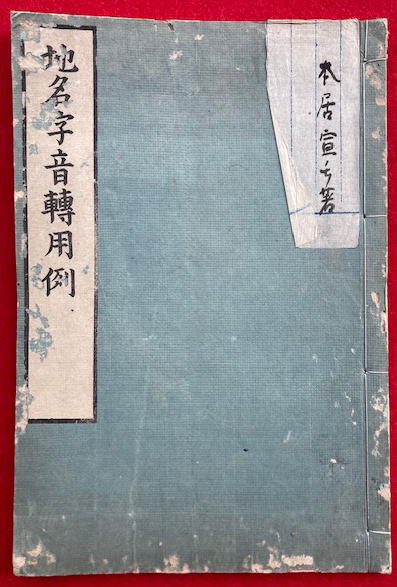 本居宣長著
地名字音轉用例